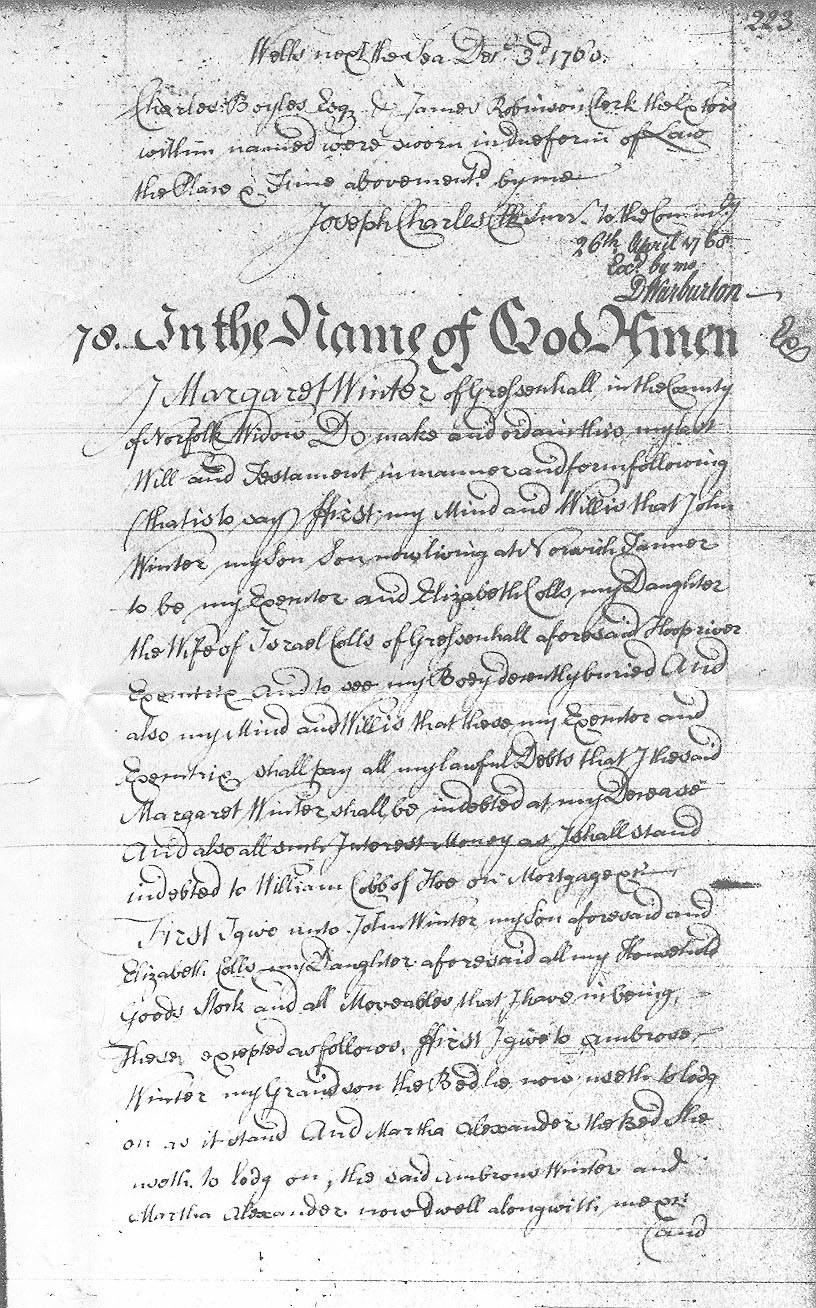 223
Wells next the Sea Decr. 3d. 1760.
Charles Boyles Esqr. & James Robinson Clerk the Extors
within named were sworn in due form of Law
the Place & Time abovement.d by me
Joseph Charles Clk Surr. to the Comissy
26th April 1768
Exd. by me
D Warburton
78. In the Name of God Amen
I Margaret Winter of Gressenhall in the County
of Norfolk Widow Do make and ordain this my last
Will and Testament in manner and form following
(that is to say) ffirst my Mind and Will is that John
Winter my Son Son now living at Norwich Tanner
to be my Executor and Elizabeth Colls my Daughter
the Wife of Israel Colls of Gressenhall aforesaid Hoopriver
Executrix And to see my Body decently buried And
also my Mind and Will is that these my Executor and
Executrix shall pay all my lawful Debts that I the said
Margaret Winter shall be indebted at my Decease
And also all such Interest Money as I shall stand
indebted to William Cobb of Hoe on Mortgage
First I give unto John Winter my Son aforesaid and
Elizabeth Colls my Daughter aforesaid all my Household
Goods Stock and all Moveables that I have in being,
These excepted as follows, ffirst I give to Ambrose
Winter my Grandson the Bed he now useth to lodg
on as it stand And Martha Alexander the Bed She
useth to lodg on, the said Ambrose Winter and
Martha Alexander now dwell along with me
(and